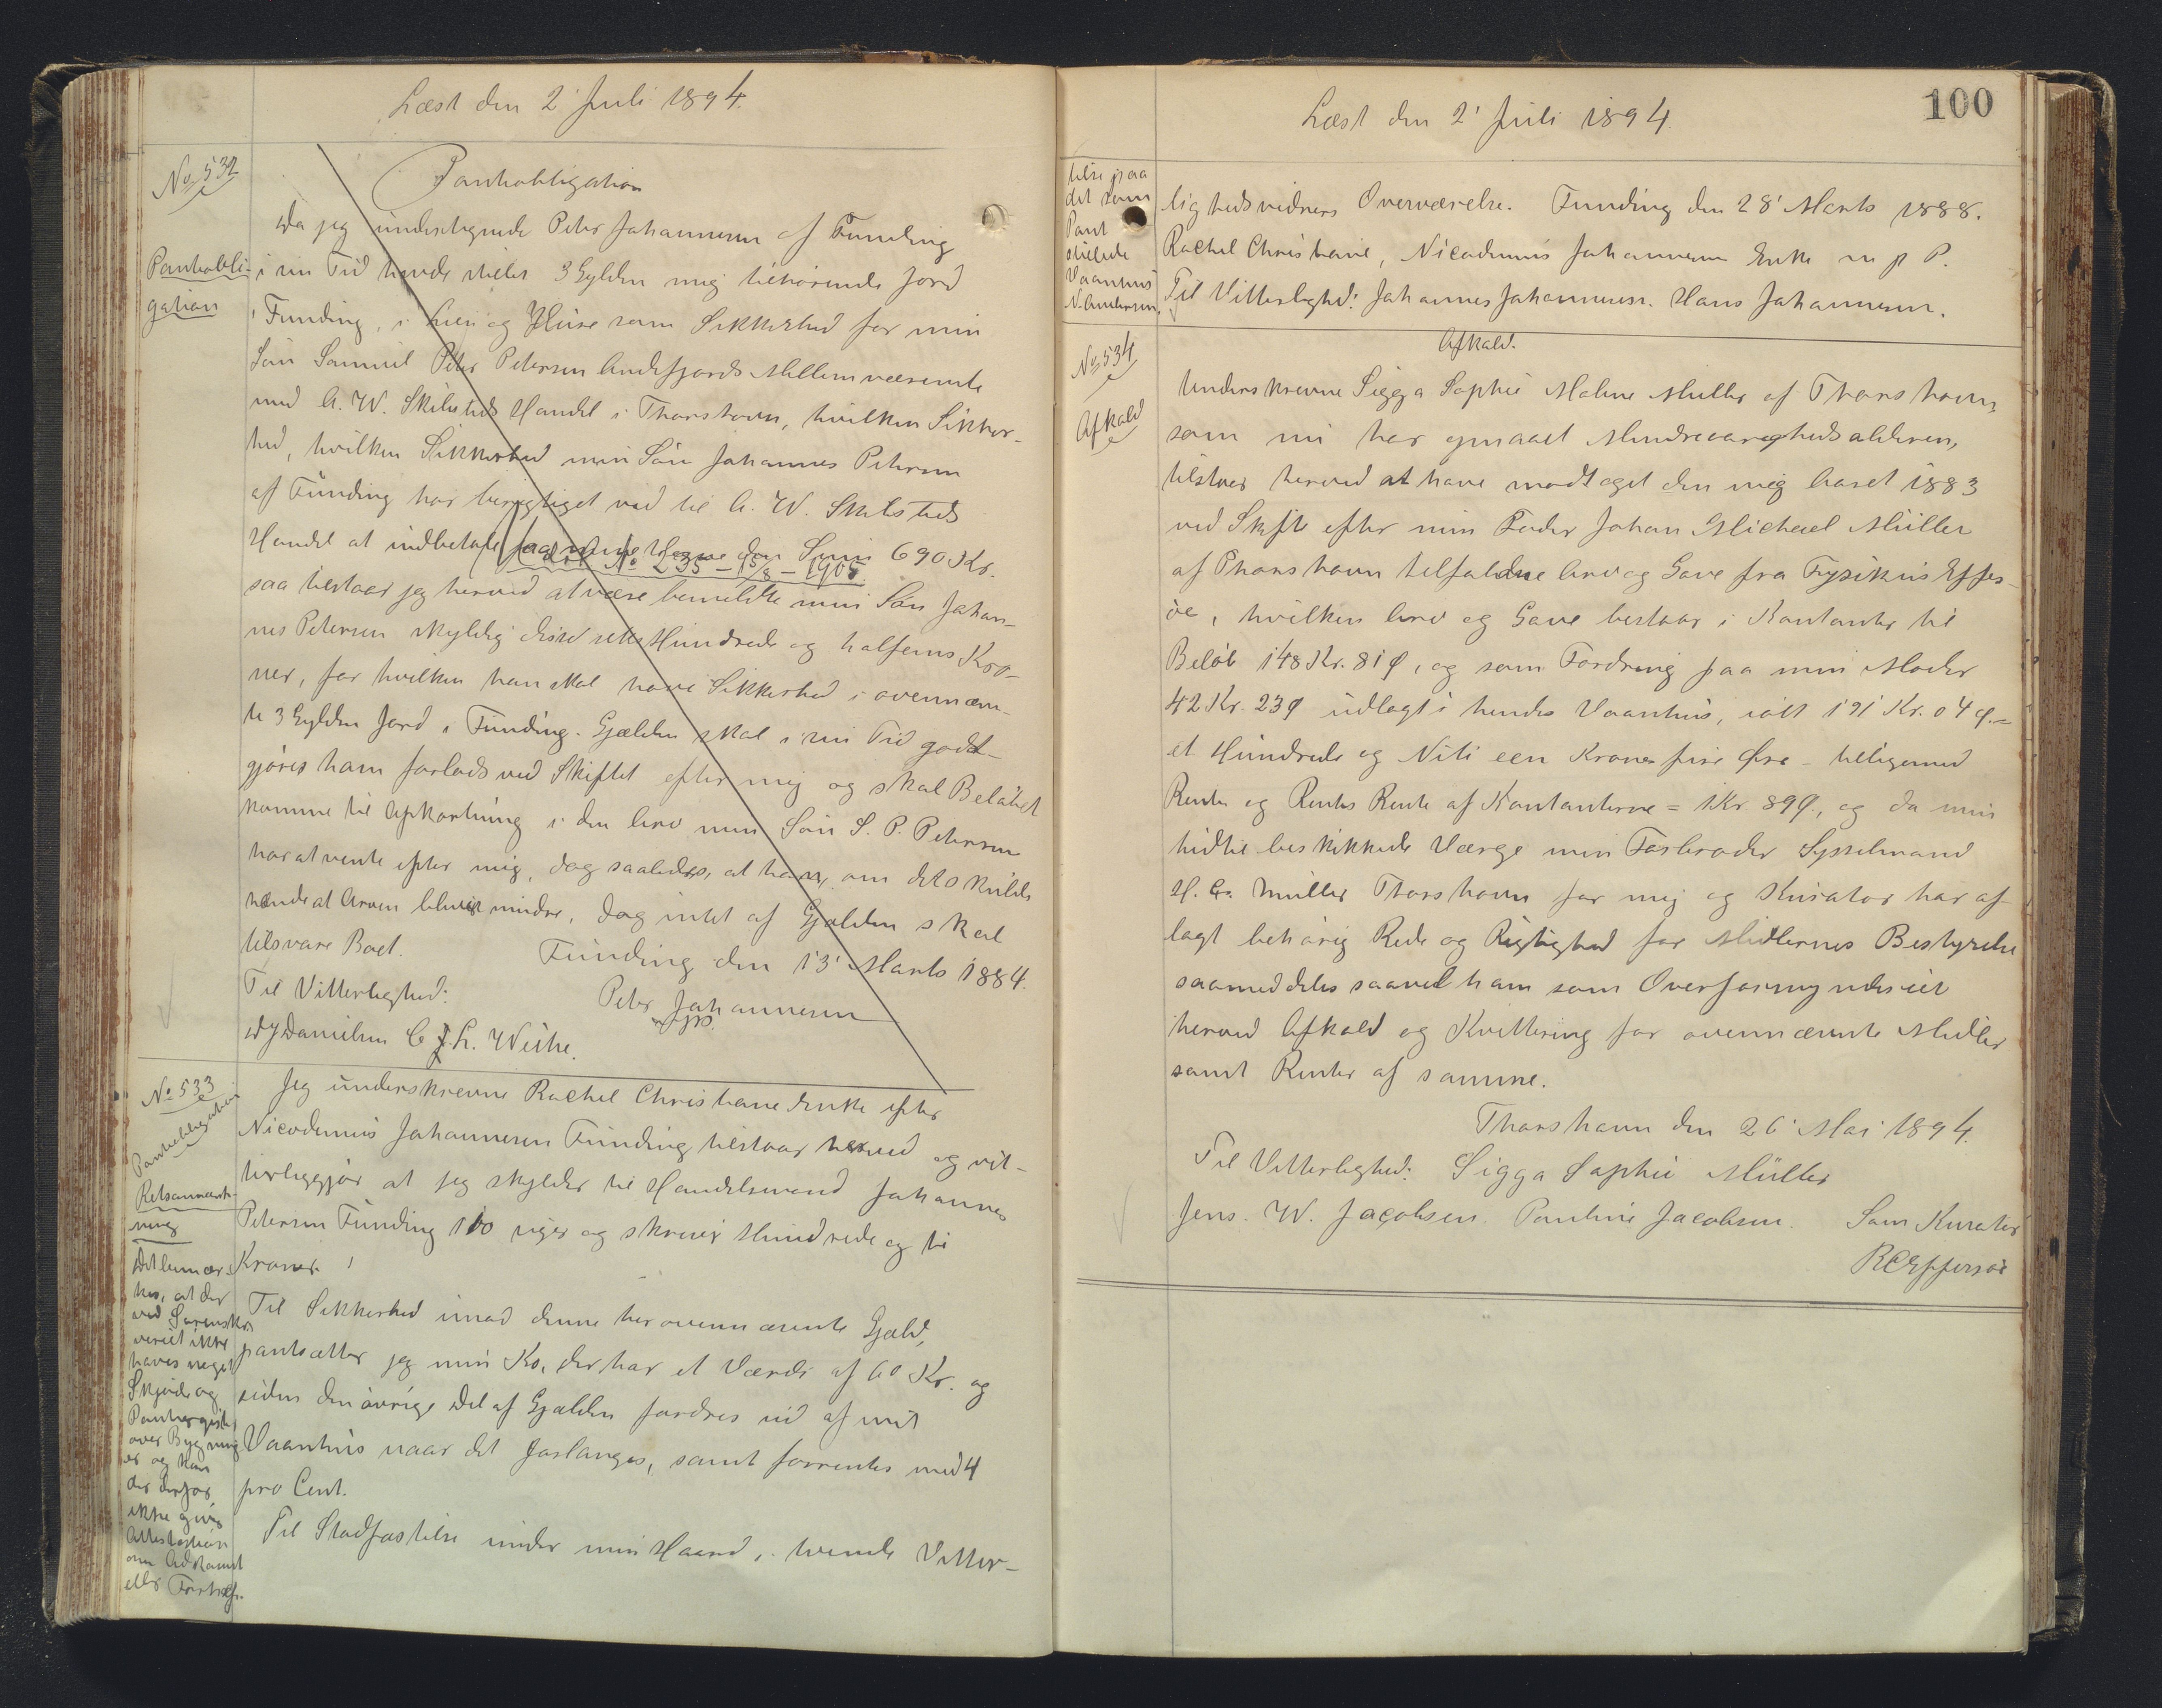 Læst den 2' Juli 1894.
No. 532
Pantobligation
Pantobli-
gation
Da jeg undertegnede Peter Johannesen af Funding
i sin Tid havde stillet 3 Gylden mig tilhørende Jord
i Funding, i Lien og Huse som Sikkerhed for min
Søn Samuel Peter Petersen Andefjords Mellemværende
med A. W. Skibsteds Handel i Thorshavn, hvilken Sikker-
hed, hvilken Sikkerhed min Søn Johannes Petersen
af Funding har berigtiget ved til A. W. Skibsteds
Handel at indbetale paa mine Vegne den Sum 690 Kr.
No 235 - 15/8 - 1905
saa tilstaar jeg herved at være bemeldte min Søn Johan-
nes Petersen skyldig disse seks Hundrede og halfems Kro-
ner, for hvilken han skal have Sikkerhed i ovennævn-
te 3 Gylden Jord i Funding. Gjælden skal i sin Tid godt-
gjøres ham forlods ved Skiftet efter mig og skal Beløbet
komme til Afkortning i den Arv min Søn S. P. Petersen
har at vente efter mig, dog saaledes, at han, om det skulde
hænde at Arven bliver mindre, dog intet af Gjælden skal
tilsvare Boet.
Funding den 13' Marts 1884.
Til Vitterlighed:
Peter Johannesen
m. p.
DJ Danielsen C. J. L. Weihe.
No. 533
Pantobligation
Jeg underskrevne Rachel Christiane Enke efter
Nicodemus Johannesen Funding tilstaar herved og vit-
terliggjør at jeg skylder til Handelsmand Johannes
Petersen Funding 110 siger og skriver Hundrede og ti
Kroner.
Til Sikkerhed imod denne her ovennævnte Gjæld,
pantsætter jeg min Ko, der har et Værdi af 60 Kr. og
siden den øvrige Del af Gjælden fordres ud af mit
Vaanhus naar det forlanges, samt forrentes med 4
pro Cent.
Til Stadfæstelse under min Haand, i tvende Vitter-
Retsanmærk-
ning
Det bemær-
kes, at der
ved Sorenskri
veriet ikke
haves noget
Skjøde og
Panteregister
over Bygning
er og kan
der derfor
ikke gives
Attestation
om Adkomst
eller Forhæf-
100
Læst den 2' Juli 1894.
telse paa
det som
Pant
stillede
Vaanhus
N. Andersen.
lighedsvidners Overværelse. Funding den 28' Marts 1888.
Rachel Christiane, Nicodemus Johannesen Enke m p P.
Til Vitterlighed: Johannes Johannesen. Hans Johannesen.
No. 534
Afkald
Afkald.
Underskrevne Sigga Sophie Maline Müller af Thorshavn,
som nu har opnaaet Mindreaarighedsalderen,
tilstaar herved at have modtaget den mig Aaret 1883
ved Skifte efter min Fader Johan Michael Müller
af Thorshavn tilfaldne Arv og Gave fra Fysikus Effers-
øe, hvilken Arv og Gave bestaar i Kontanter til
Beløb 148 Kr. 81 Ø, og som Fordring paa min Moder
42 Kr. 23 Ø udlagt i hendes Vaanhus, ialt 191 Kr. 04 Ø. =
et Hundrede og Niti een Kroner fire Øre - tilligemed
Renter og Rentes Rente af Kontanterne = 1 Kr. 89 Ø., og da min
hidtil beskikkede Værge min Farbroder Sysselmand
H. C. Müller Thorshavn for mig og Kurator har af
lagt behørig Rede og Rigtighed for Midlernes Bestyrelse
saa meddeles saavel ham som Overformynderiet
herved Afkald og Kvittering for ovennævnte Midler
samt Renter af samme.
Thorshavn den 26' Mai 1894.
Til Vitterlighed: Sigga Sophie Müller
Jens. W. Jacobsen. Pauline Jacobsen. Som Kurator
R C Effersøe